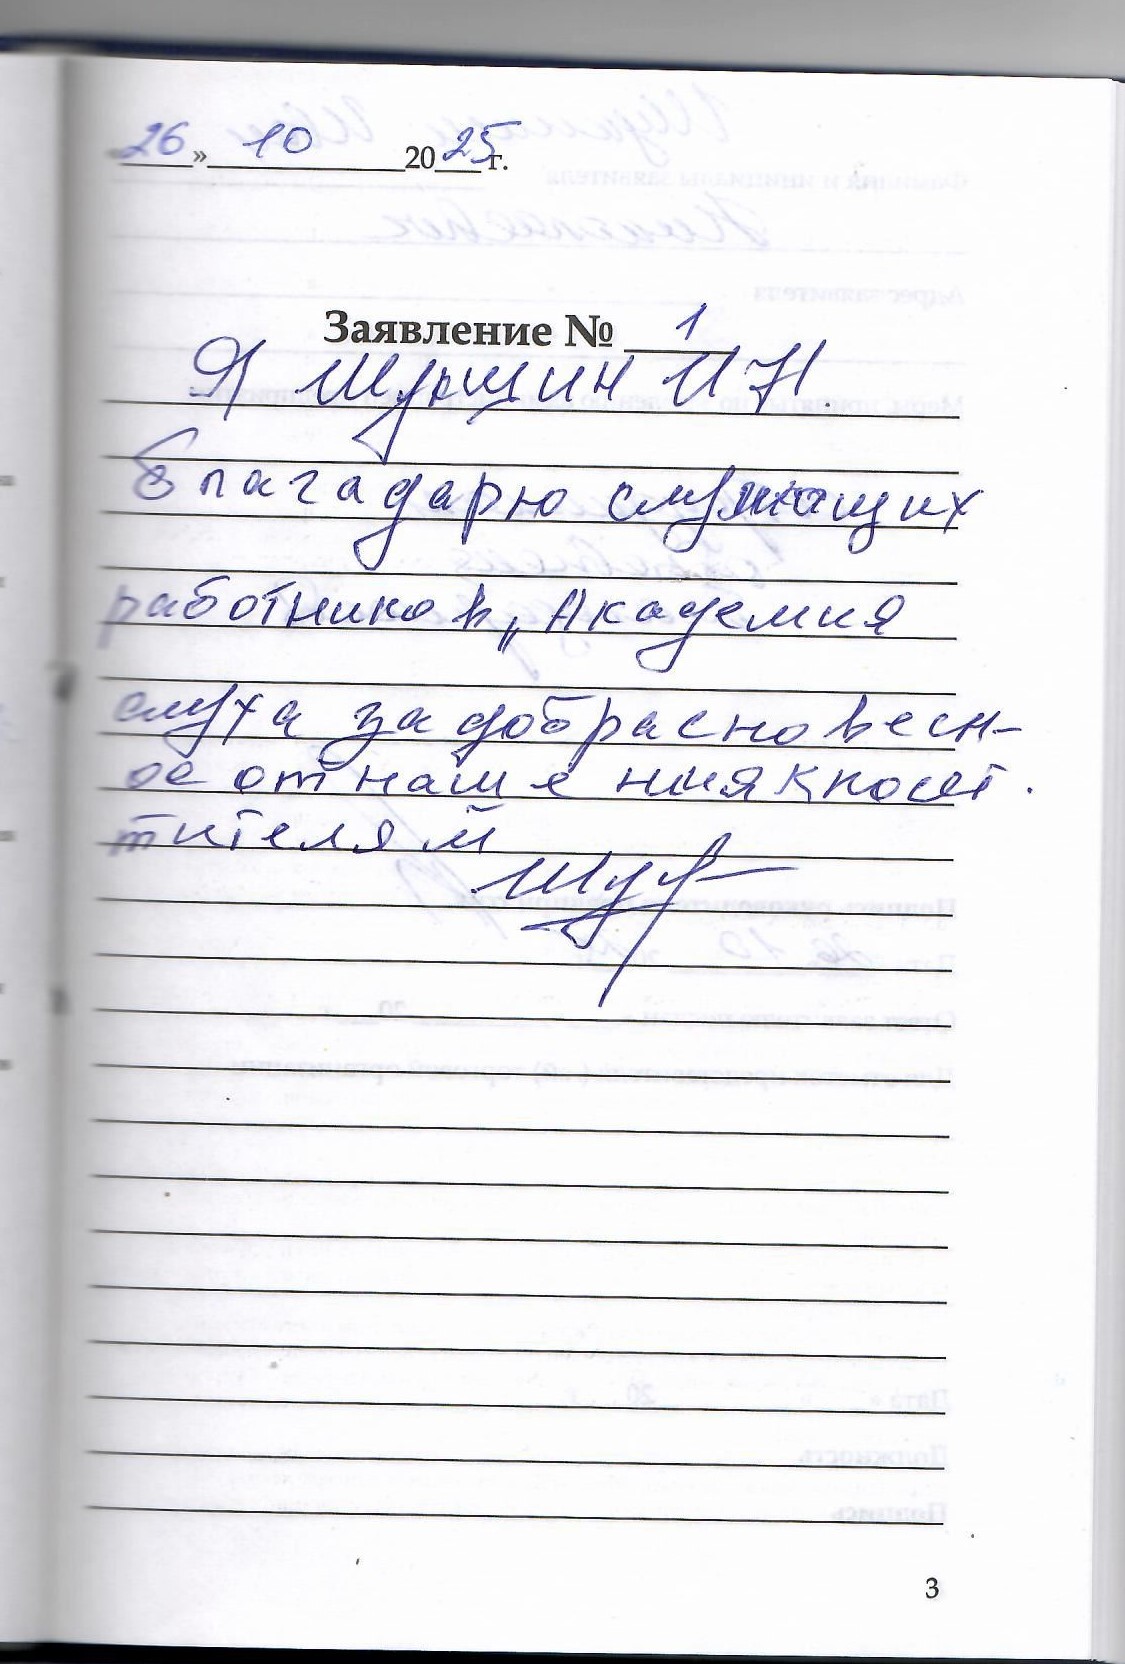 26 » 10 2025 г.
Заявление № 1
Я
благадарю служащих
работников „Академия
слуха за добрасновесн-
ое отнаше ния к посет
тителям
3